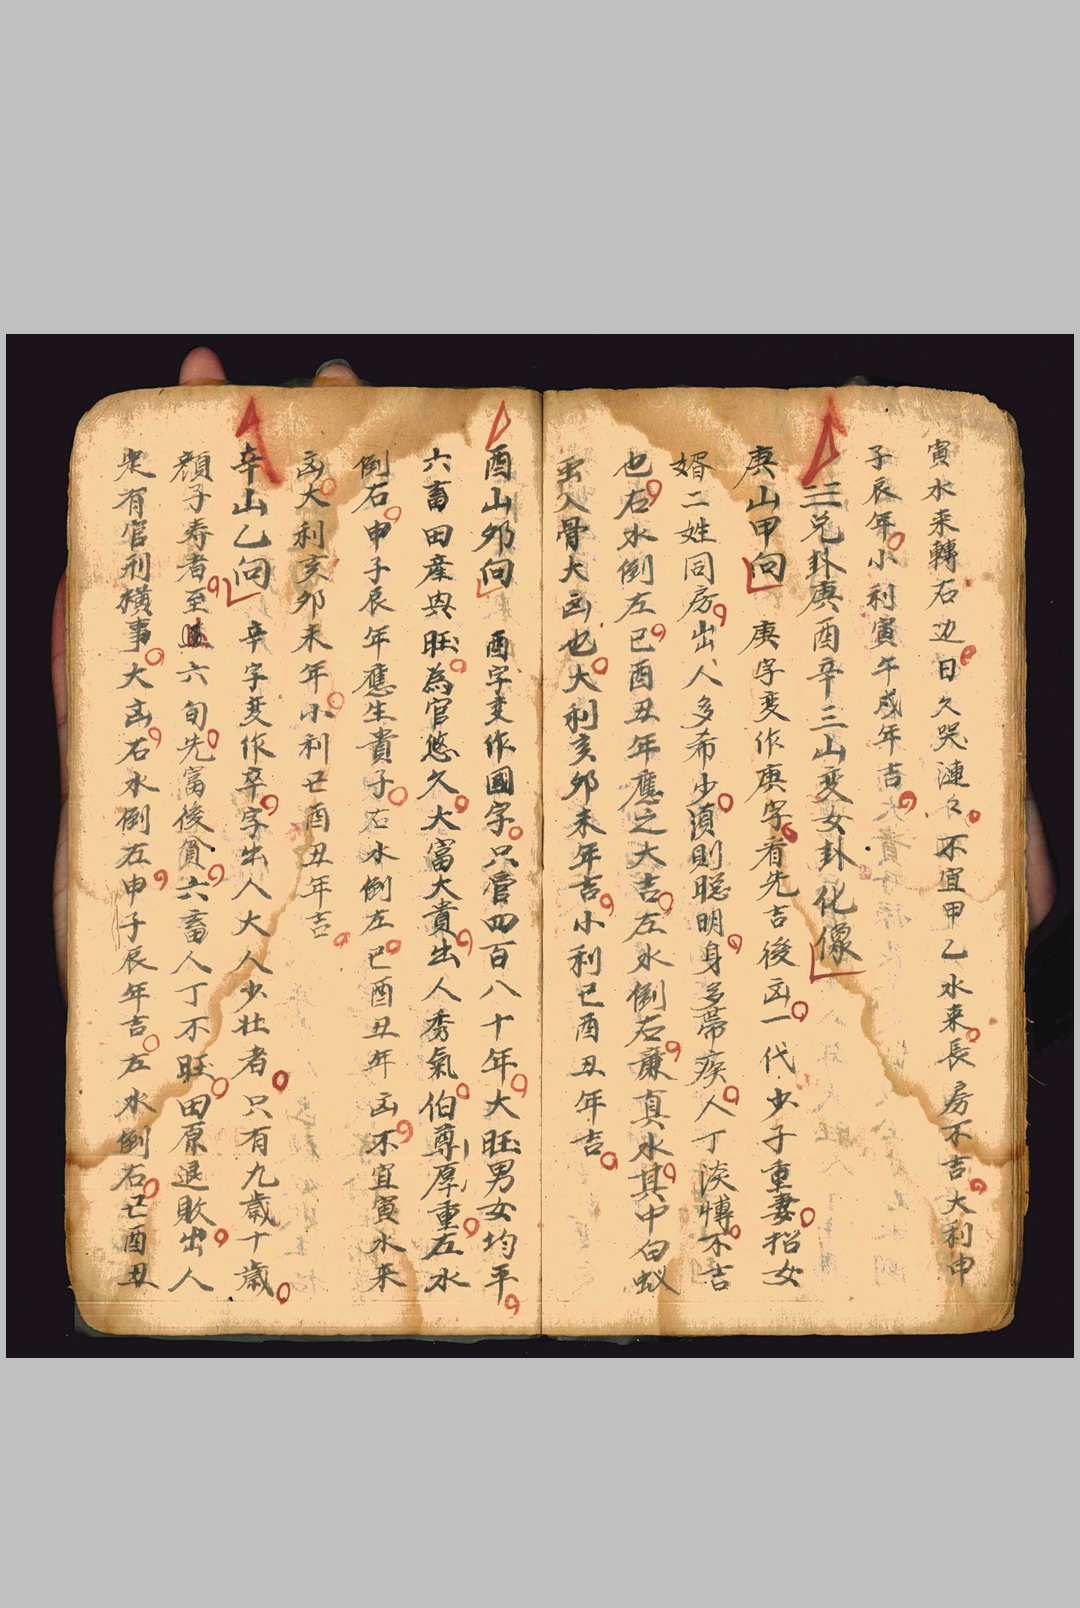 寅水来轉右边日久哭漣々不宜甲乙水来長房不吉大利申
子辰年小利寅午戌年吉
三兑卦庚酉辛三山变女卦化像
庚山甲向 庚字变作庚字看先吉後凶一代少子重妻招女
婿二姓同房出人多希少湏則聪明身多帶疾人丁淡愽不吉
也右水倒左巳酉丑年應之大吉左水倒右廉真水其中白蚁
虫入骨大凶也大利亥夘未年吉小利巳酉丑年吉
酉山夘向 酉字变作國字只管四百八十年大旺男女均平
六畜田產興旺為官悠久大富大貴出人秀氣伯尊厚重左水
倒右申子辰年應生貴子右水倒左巳酉丑年凶不宜寅水来
凶大利亥夘未年小利巳酉丑年吉
辛山乙向 辛字变作卒字出人大人少壮者只有九歲十歲
顔子寿者至六旬先富後貧六畜人丁不旺田原退敗出人
有官刑横事大凶右水倒左申子辰年吉左水倒右巳酉丑